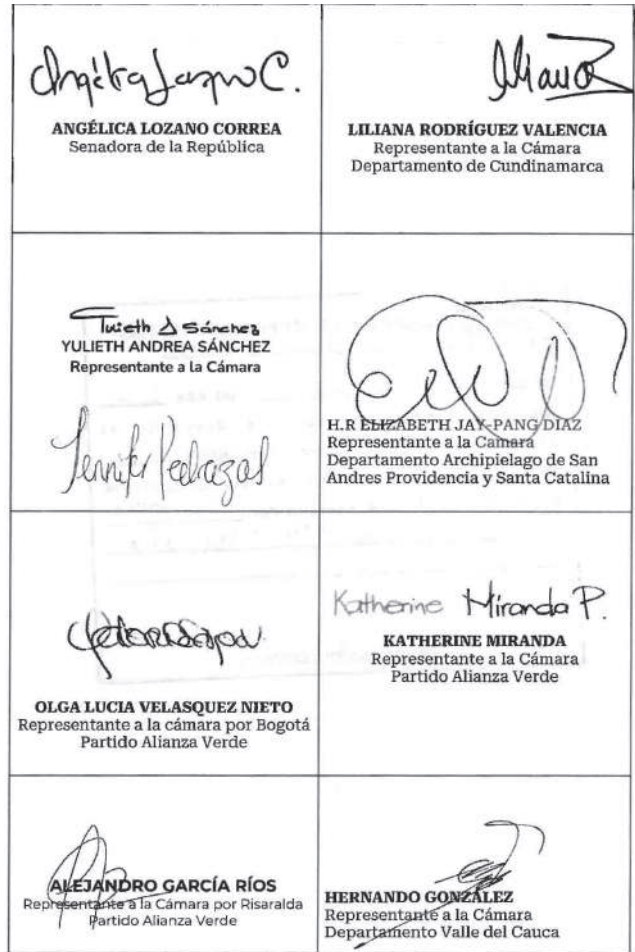 Angélica Lozano C.
ANGÉLICA LOZANO CORREA
Senadora de la República
LILIANA RODRÍGUEZ VALENCIA
Representante a la Cámara
Departamento de Cundinamarca
Yulieth A Sánchez
YULIETH ANDREA SÁNCHEZ
Representante a la Cámara
Jennifer Pedraza S
H.R ELIZABETH JAY-PANG DIAZ
Representante a la Camara
Departamento Archipielago de San
Andres Providencia y Santa Catalina
OLGA LUCIA VELASQUEZ NIETO
Representante a la cámara por Bogotá
Partido Alianza Verde
Katherine Miranda P.
KATHERINE MIRANDA
Representante a la Cámara
Partido Alianza Verde
ALEJANDRO GARCÍA RÍOS
Representante a la Cámara por Risaralda
Partido Alianza Verde
HERNANDO GONZÁLEZ
Representante a la Cámara
Departamento Valle del Cauca